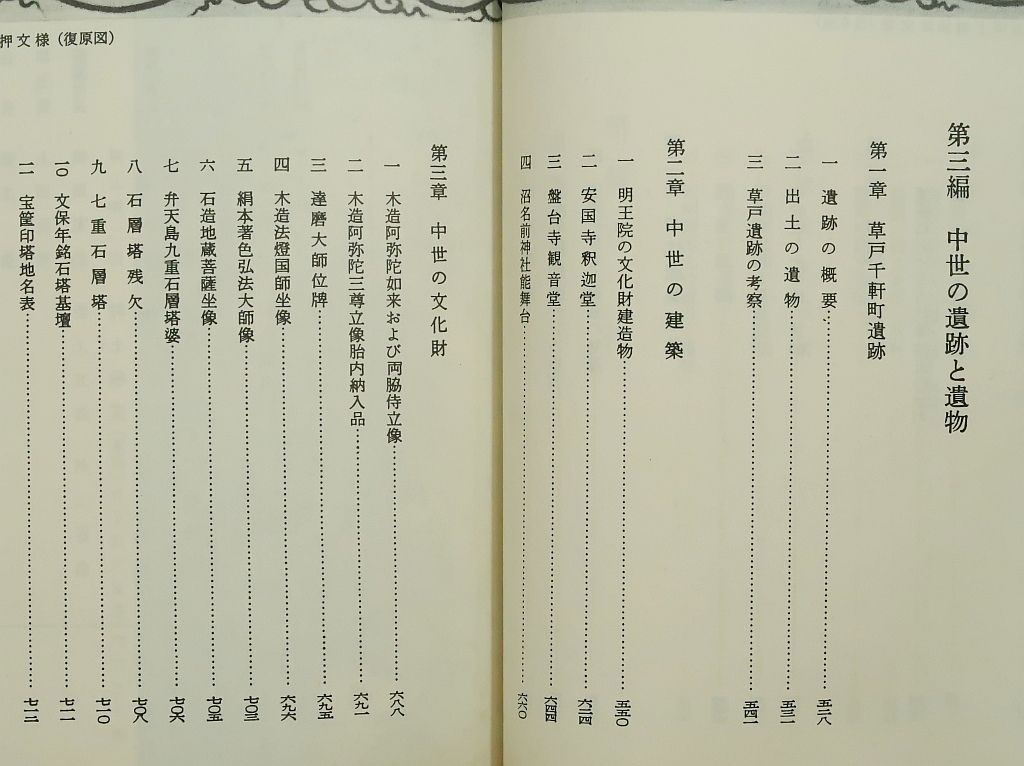 第三編　中世の遺跡と遺物
第一章　草戸千軒町遺跡
一　遺跡の概要…五二八
二　出土の遺物…五三二
三　草戸遺跡の考察…五四一
第二章　中世の建築
一　明王院の文化財建造物…五五〇
二　安国寺釈迦堂…六三四
三　盤台寺観音堂…六四四
四　沼名前神社能舞台…六六〇
第三章　中世の文化財
一　木造阿弥陀如来および両脇侍立像…六八八
二　木造阿弥陀三尊立像胎内納入品…六九一
三　達磨大師位牌…六九五
四　木造法燈国師坐像…六九六
五　絹本著色弘法大師像…七〇三
六　石造地蔵菩薩坐像…七〇五
七　弁天島九重石層塔婆…七〇六
八　石層塔残欠…七〇八
九　七重石層塔…七一〇
一〇　文保年銘石塔基壇…七一一
一一　宝篋印塔地名表…七一二
押文様（復原図）